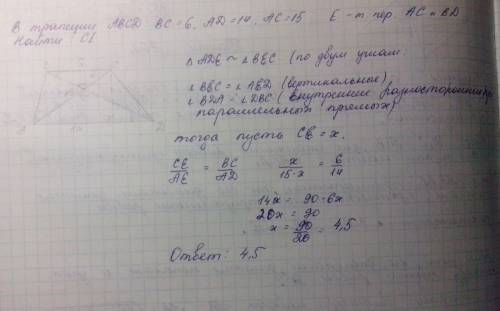 В трапеции ABCD BC=6, AD=14, AC=15 E - т. пер. AC и BD
Найти CE
△ ADE ~ △ BEC (по двум углам
∠ BEC = ∠ AED (вертикальные)
∠ BDA = ∠ DBC (внутренние разносторонние при
параллельных прямых)
тогда пусть CE = x.
CE/AE = BC/AD x/15-x = 6/14
14x = 90-6x
20x = 90
x = 90/20 = 4,5
Ответ: 4,5